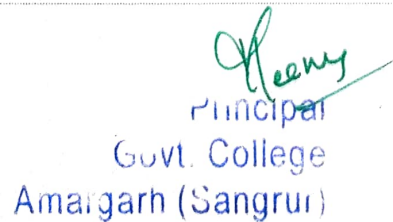 Principal
Govt. College
Amargarh (Sangrur)